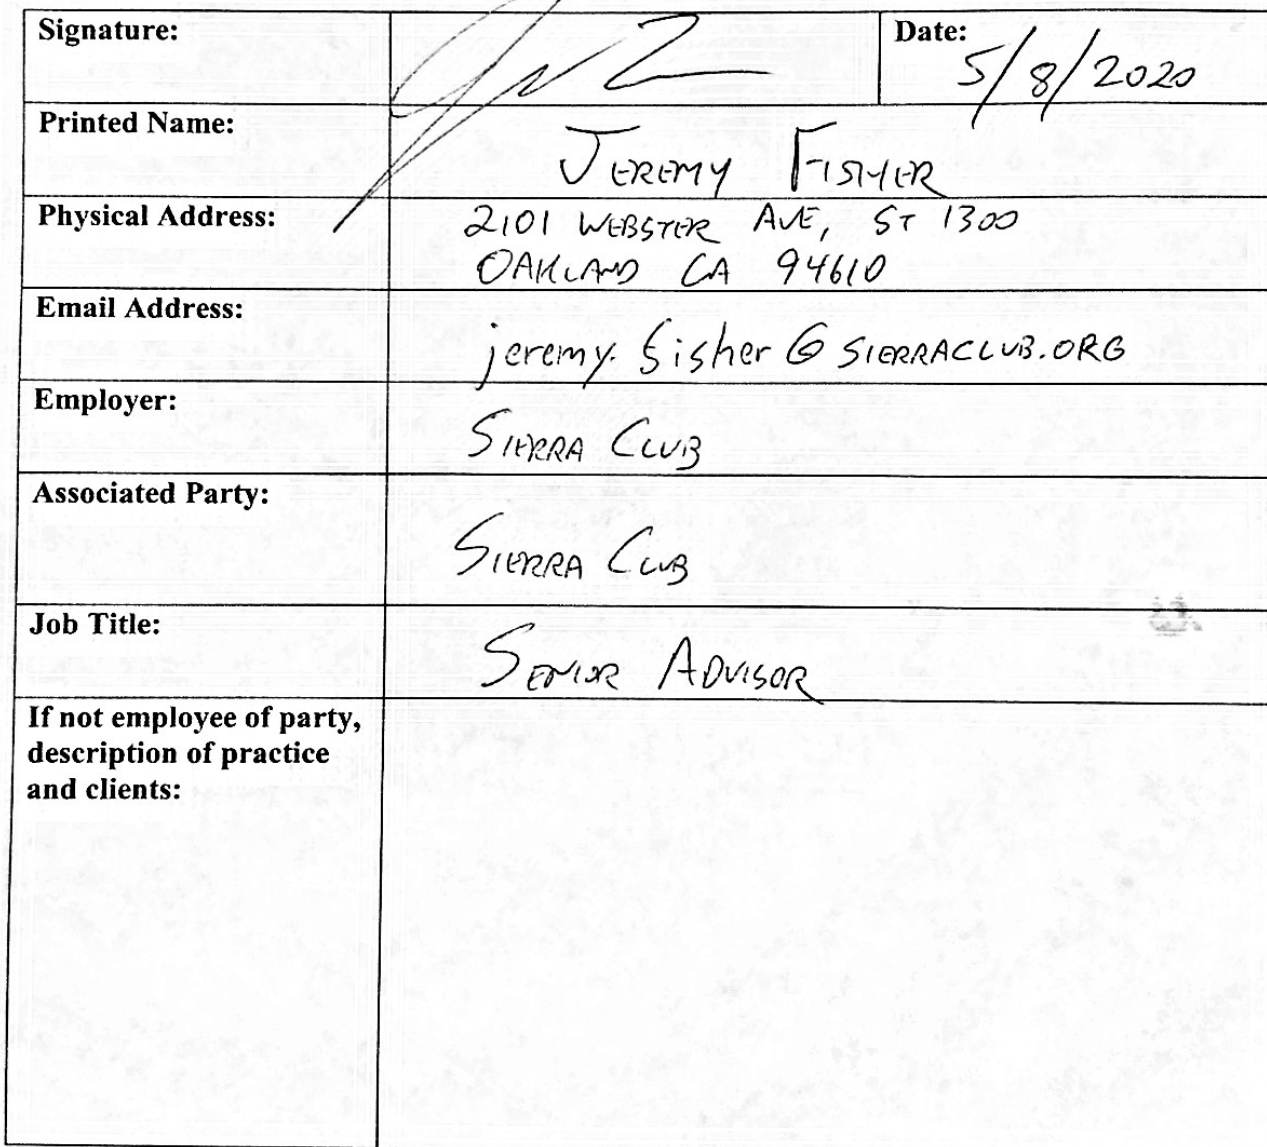 Signature:
Date: 5/8/2020
Printed Name: JEREMY FISHER
Physical Address: 2101 WEBSTER AVE, ST 1300
OAKLAND CA 94610
Email Address: jeremy.fisher@SIERRACLUB.ORG
Employer: SIERRA CLUB
Associated Party: SIERRA CLUB
Job Title: SENIOR ADVISOR
If not employee of party,
description of practice
and clients: